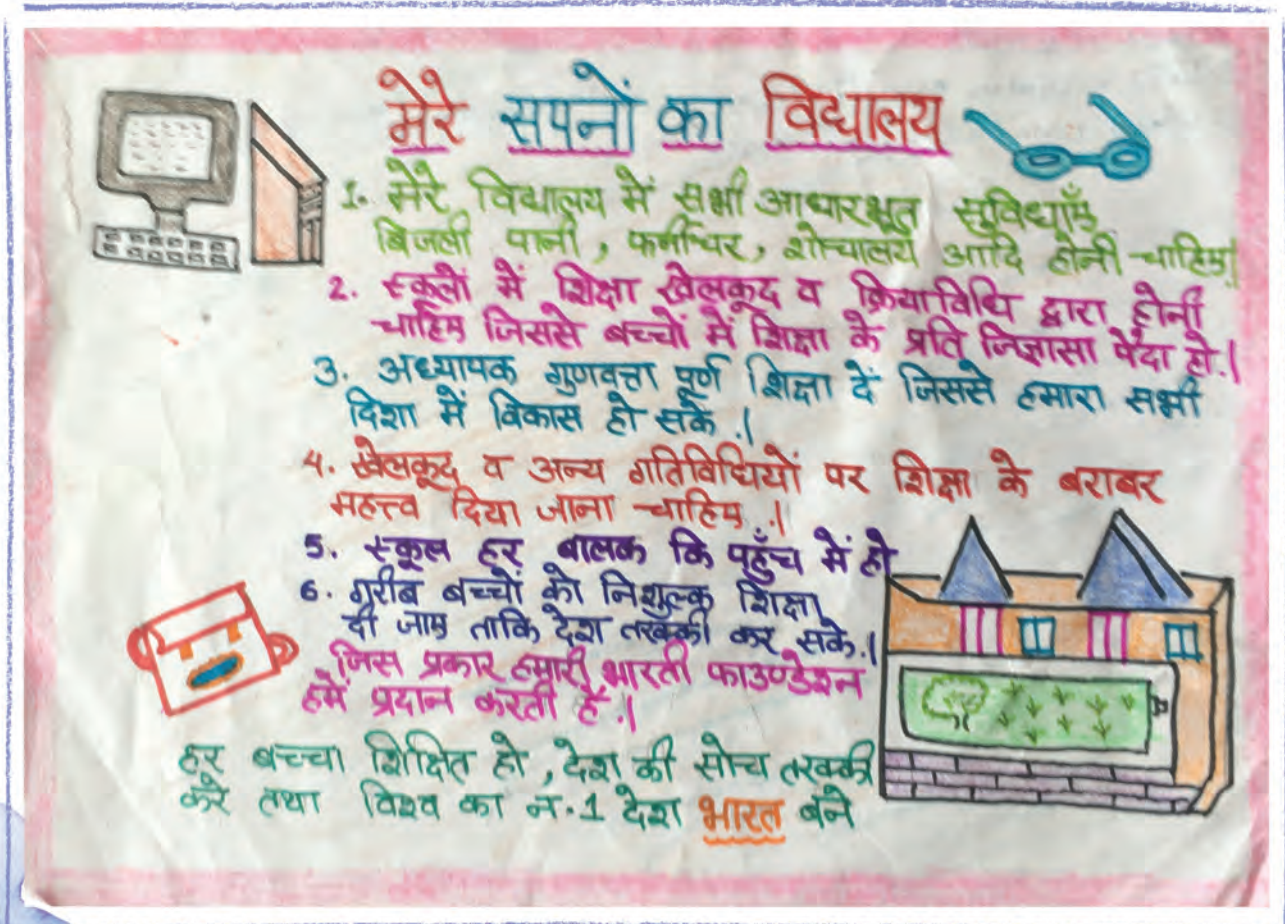 मेरे सपनों का विद्यालय
1. मेरे विद्यालय में सभी आधारभूत सुविधाएँ
बिजली पानी, फर्नीचर, शौचालय आदि होनी चाहिए।
2. स्कूलों में शिक्षा खेलकूद व क्रियाविधि द्वारा होनी
चाहिए जिससे बच्चों में शिक्षा के प्रति जिज्ञासा पैदा हो.।
3. अध्यापक गुणवत्ता पूर्ण शिक्षा दें जिससे हमारा सभी
दिशा में विकास हो सके.।
4. खेलकूद व अन्य गतिविधियों पर शिक्षा के बराबर
महत्त्व दिया जाना चाहिए.।
5. स्कूल हर बालक कि पहुँच में हो
6. गरीब बच्चों को निशुल्क शिक्षा
दी जाए ताकि देश तरक्की कर सके.।
जिस प्रकार हमारी भारती फाउण्डेशन
हमें प्रदान करती है.।
हर बच्चा शिक्षित हो, देश की सोच तरक्की
करे तथा विश्व का न.1 देश भारत बने